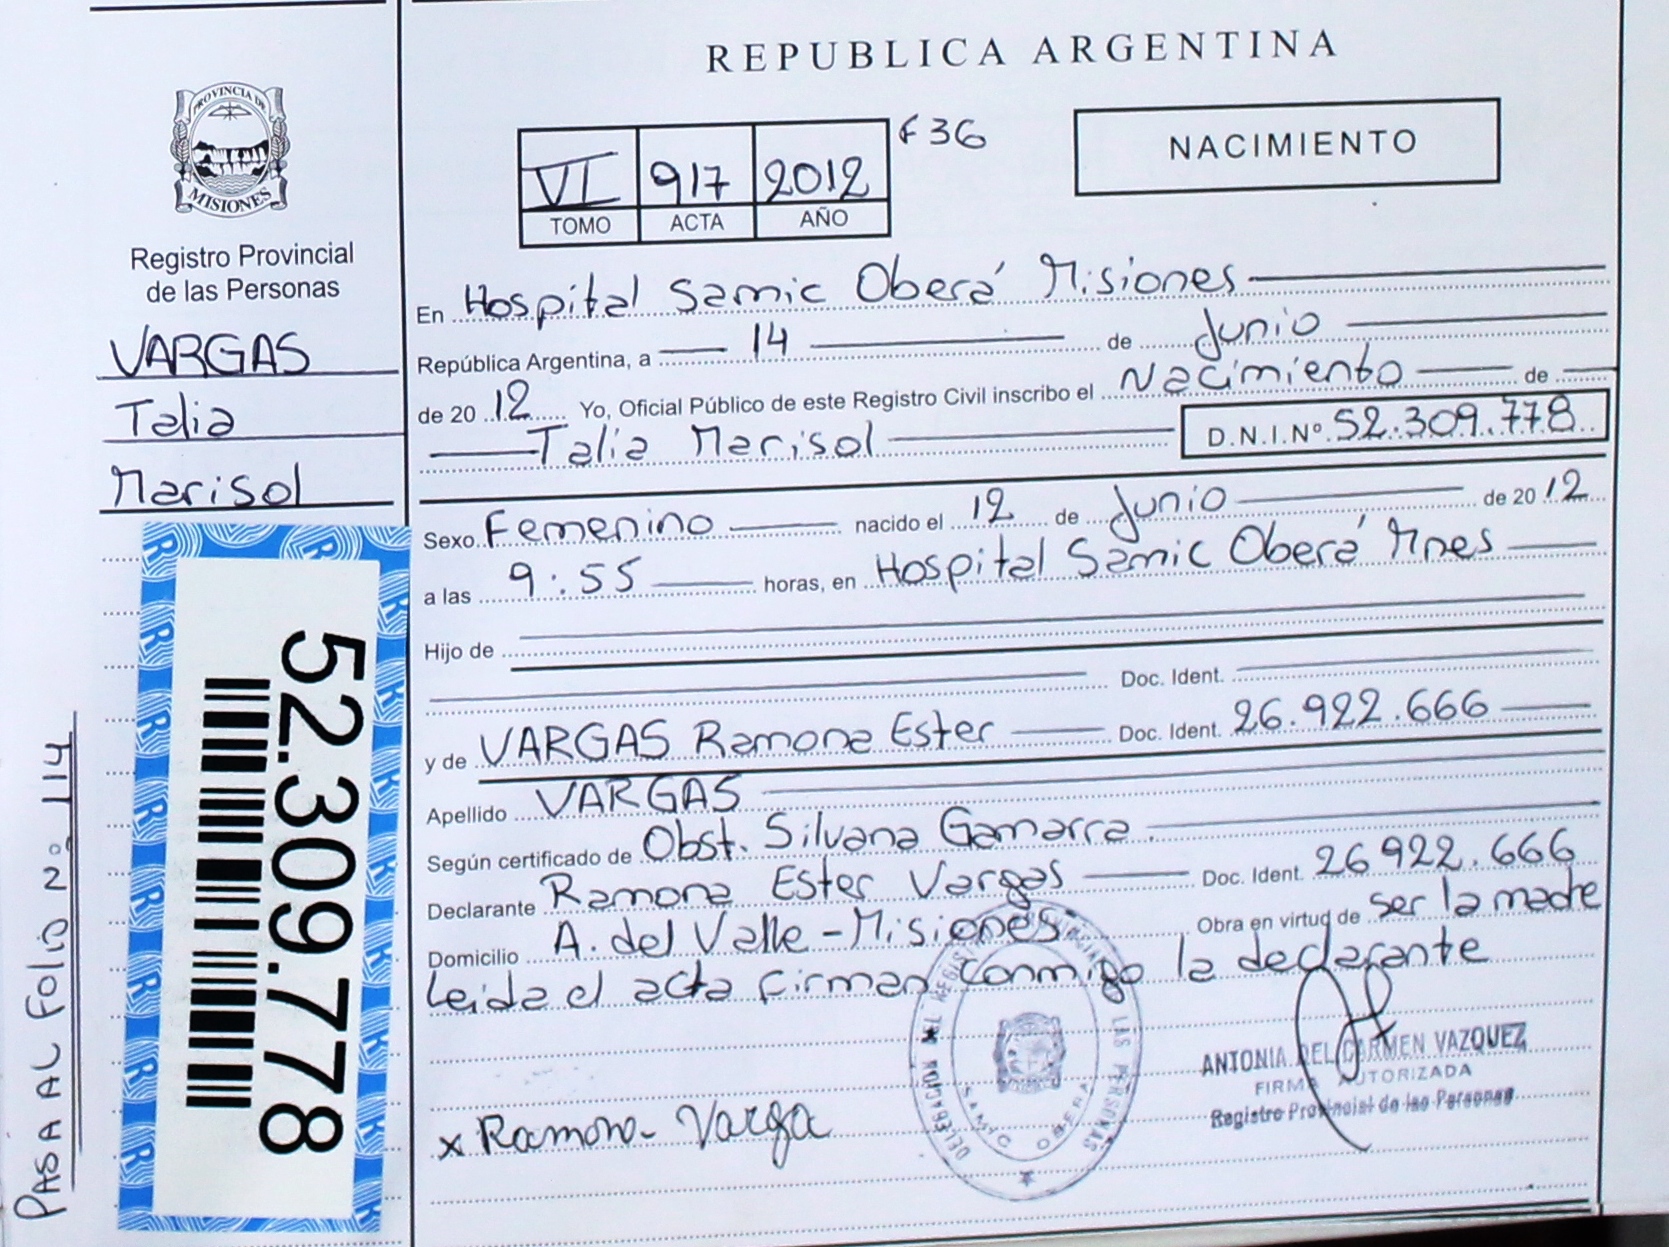 PROVINCIA DE
MISIONES
Registro Provincial
de las Personas
VARGAS
Talia
Marisol
52.309.778
PASA AL FOLIO Nº 114
REPUBLICA ARGENTINA
VI 917 2012 F36
TOMO ACTA AÑO
NACIMIENTO
En Hospital Samic Oberá Misiones
República Argentina, a 14 de Junio
de 20 12 Yo, Oficial Público de este Registro Civil inscribo el Nacimiento de
Talia Marisol D.N.I.Nº 52.309.778
Sexo Femenino nacido el 12 de Junio de 20 12
a las 9:55 horas, en Hospital Samic Oberá Mnes
Hijo de
Doc. Ident.
y de VARGAS Ramona Ester Doc. Ident. 26.922.666
Apellido VARGAS
Según certificado de Obst. Silvana Gamarra.
Declarante Ramona Ester Vargas Doc. Ident. 26922.666
Domicilio A. del Valle - Misiones. Obra en virtud de ser la madre
Leida el acta firman conmigo la declarante
DELEGACION DEL REGISTRO PROVINCIAL DE LAS PERSONAS
SAMIC OBERA
ANTONIA DEL CARMEN VAZQUEZ
FIRMA AUTORIZADA
Registro Provincial de las Personas
x Ramona Varga